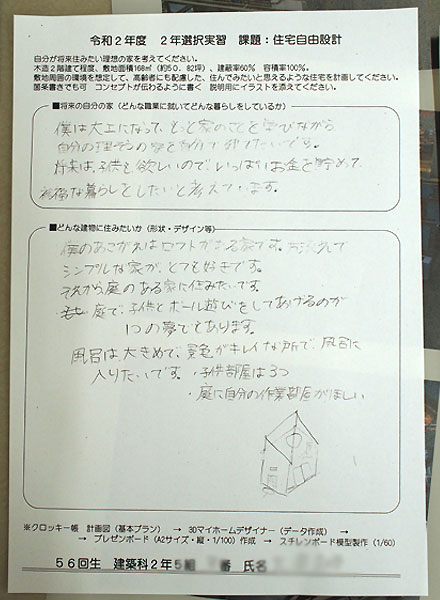 令和2年度 2年選択実習 課題：住宅自由設計
自分が将来住みたい理想の家を考えてください。
木造2階建て程度、敷地面積168㎡（約50．82坪）、建蔽率60％ 容積率100％。
敷地周囲の環境を想定して、高齢者にも配慮した、住んでみたいと思えるような住宅を計画してください。
箇条書きでも可 コンセプトが伝わるように書く 説明用にイラストを添えてください。
■将来の自分の家（どんな職業に就いてどんな暮らしをしているか）
僕は大工になって、もっと家のことを学びながら
自分の理そうの家を自分で建てたいです。
将来は、子供も欲しいので、いっぱいお金を貯めて、
裕福な暮らしをしたいと考えています。
■どんな建物に住みたいか（形状・デザイン等）
僕のあこがれはロフトがある家です。
シンプルな家が、とても好きです。
それから庭のある家に住みたいです。
庭で、子供とボール遊びをしてあげるのが
1つの夢でもあります。
風呂は大きめで、景色がキレイな所で、風呂に
入りたいです。・子供部屋は3つ
・庭に自分の作業部屋がほしい
※クロッキー帳 計画図（基本プラン） → 3Dマイホームデザイナー（データ作成） →
→ プレゼンボード（A2サイズ・縦・1/100）作成 → スチレンボード模型製作（1/60）
56回生 建築科2年5組 番 氏名